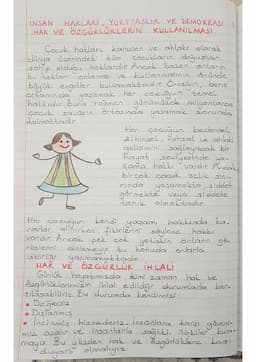 İNSAN HAKLARI, YURTTAŞLIK VE DEMOKRASİ
HAK VE ÖZGÜRLÜKLERİN KULLANILMASI
Çocuk hakları, kanunen ve ahlaki olarak
dünya üzerindeki tüm çocukların doğuştan
sahip olduğu haklardır. Ancak bazen onların
bu hakları anlaması ve kullanmasının önünde
büyük engeller bulunmaktadır. Örneğin, barış
ortamında yaşamak her çocuğun temel
hakkıdır. Buna rağmen günümüzde milyonlarca
çocuk savaşın ortasında yaşamak zorunda
kalmaktadır.
Her çocuğun bedensel,
zihinsel, ruhsal ve ahlaki
gelişimini sağlayacak bir
hayat seviyesinde ya-
şama hakkı vardır. Ancak
birçok çocuk açlık sını-
rında yaşamakta, şiddet
görmekte veya şiddete
tanık olmaktadır.
Her çocuğun kendi yaşamı hakkında ka-
rarlar alınırken fikirlerini söyleme hakkı
vardır. Ancak pek çok yetişkin onların gö-
rüşlerini almamakta bu konuda onlarla
işbirliği yapmamaktadır.
HAK VE ÖZGÜRLÜK İHLALİ
Günlük hayatımızda kimi zaman hak ve
özgürlüklerimizin ihlal edildiği durumlarla kar-
şılaşabiliriz. Bu durumda kendimizi:
• Değersiz
• Dışlanmış
• İncinmiş hissederiz. İnsanlara karşı güveni-
miz azalır ve insanlarla sağlıklı ilişkiler kura-
mayız. Bu yüzden hak ve özgürlüklere karşı
duyarlı olmalıyız.